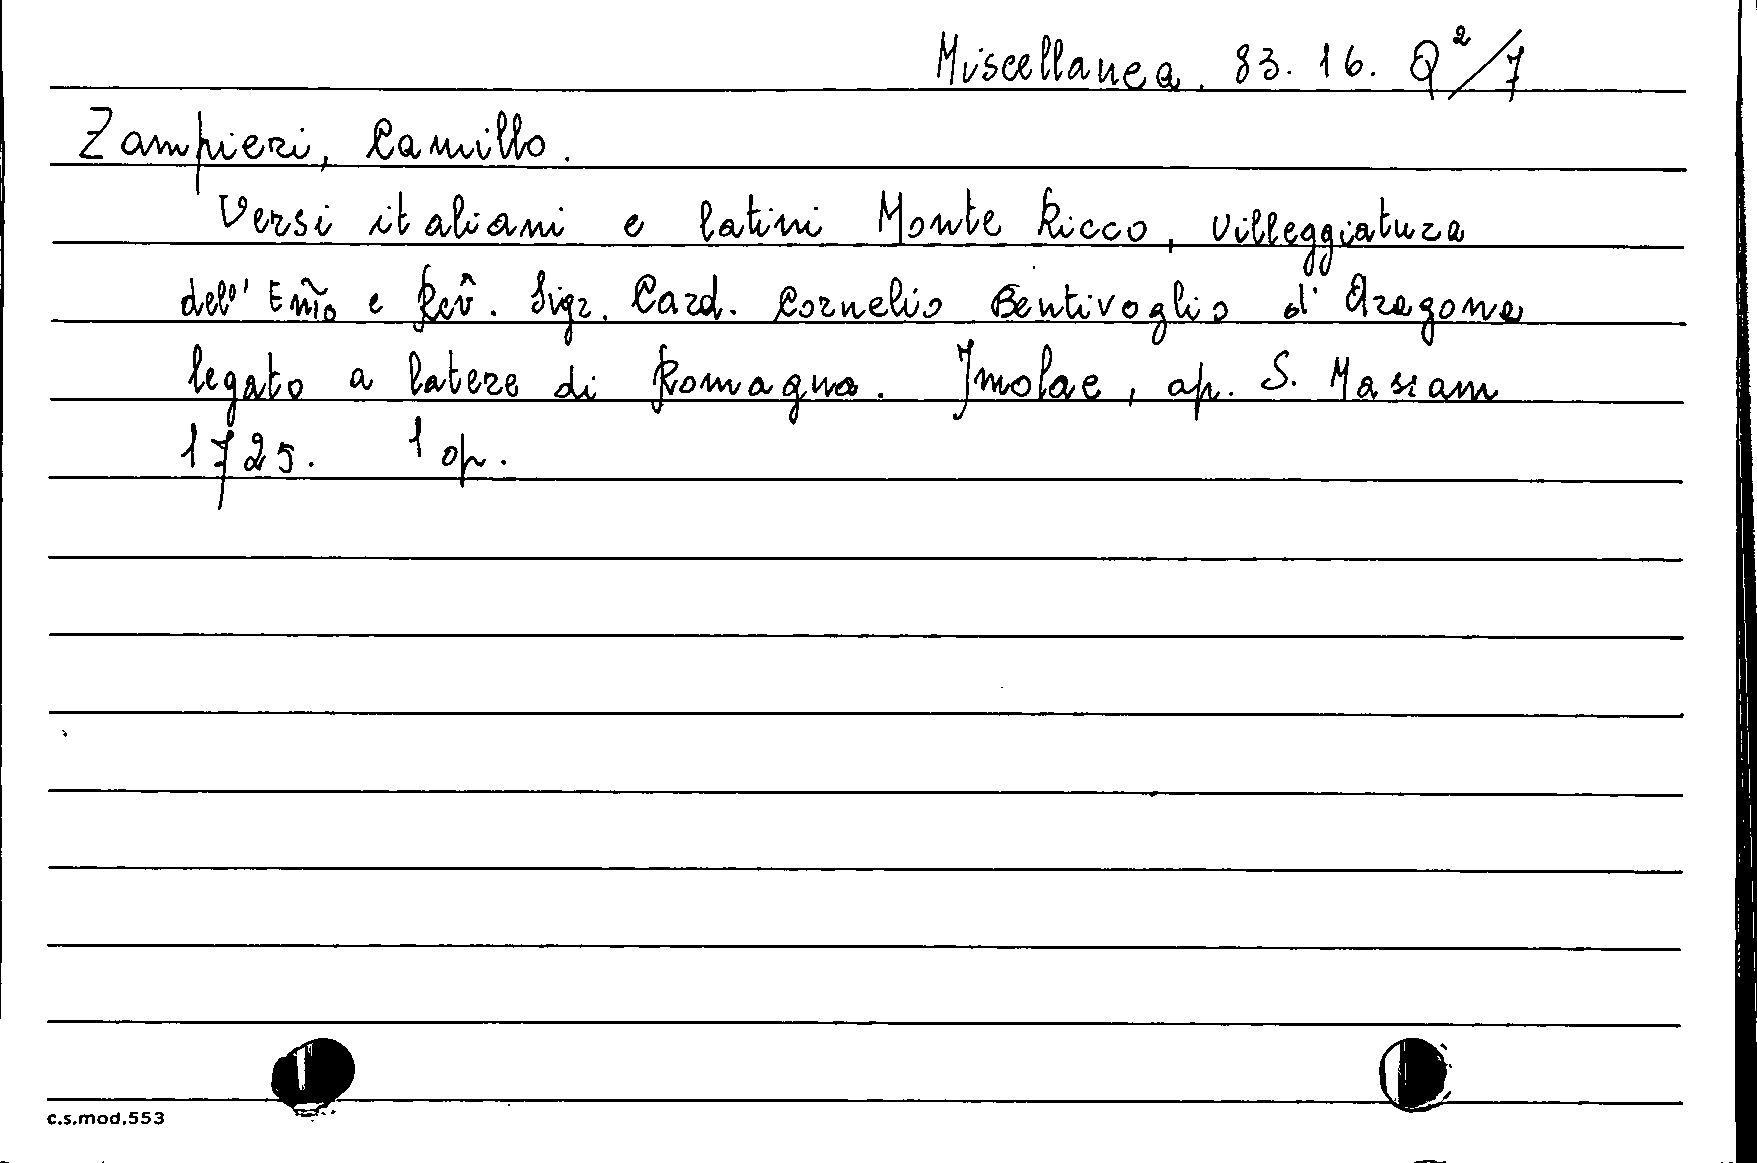 Miscellanea. 83. 16. Q²/7
Zampieri, Camillo.
Versi italiani e latini Monte Ricco, villeggiatura
dell' Em̃o e Rev̂. Sigr. Card. Cornelio Bentivoglio d' Aragona
legato a latere di Romagna. Imolae, ap. S. Massam
1725. 1 op.
c.s.mod.553